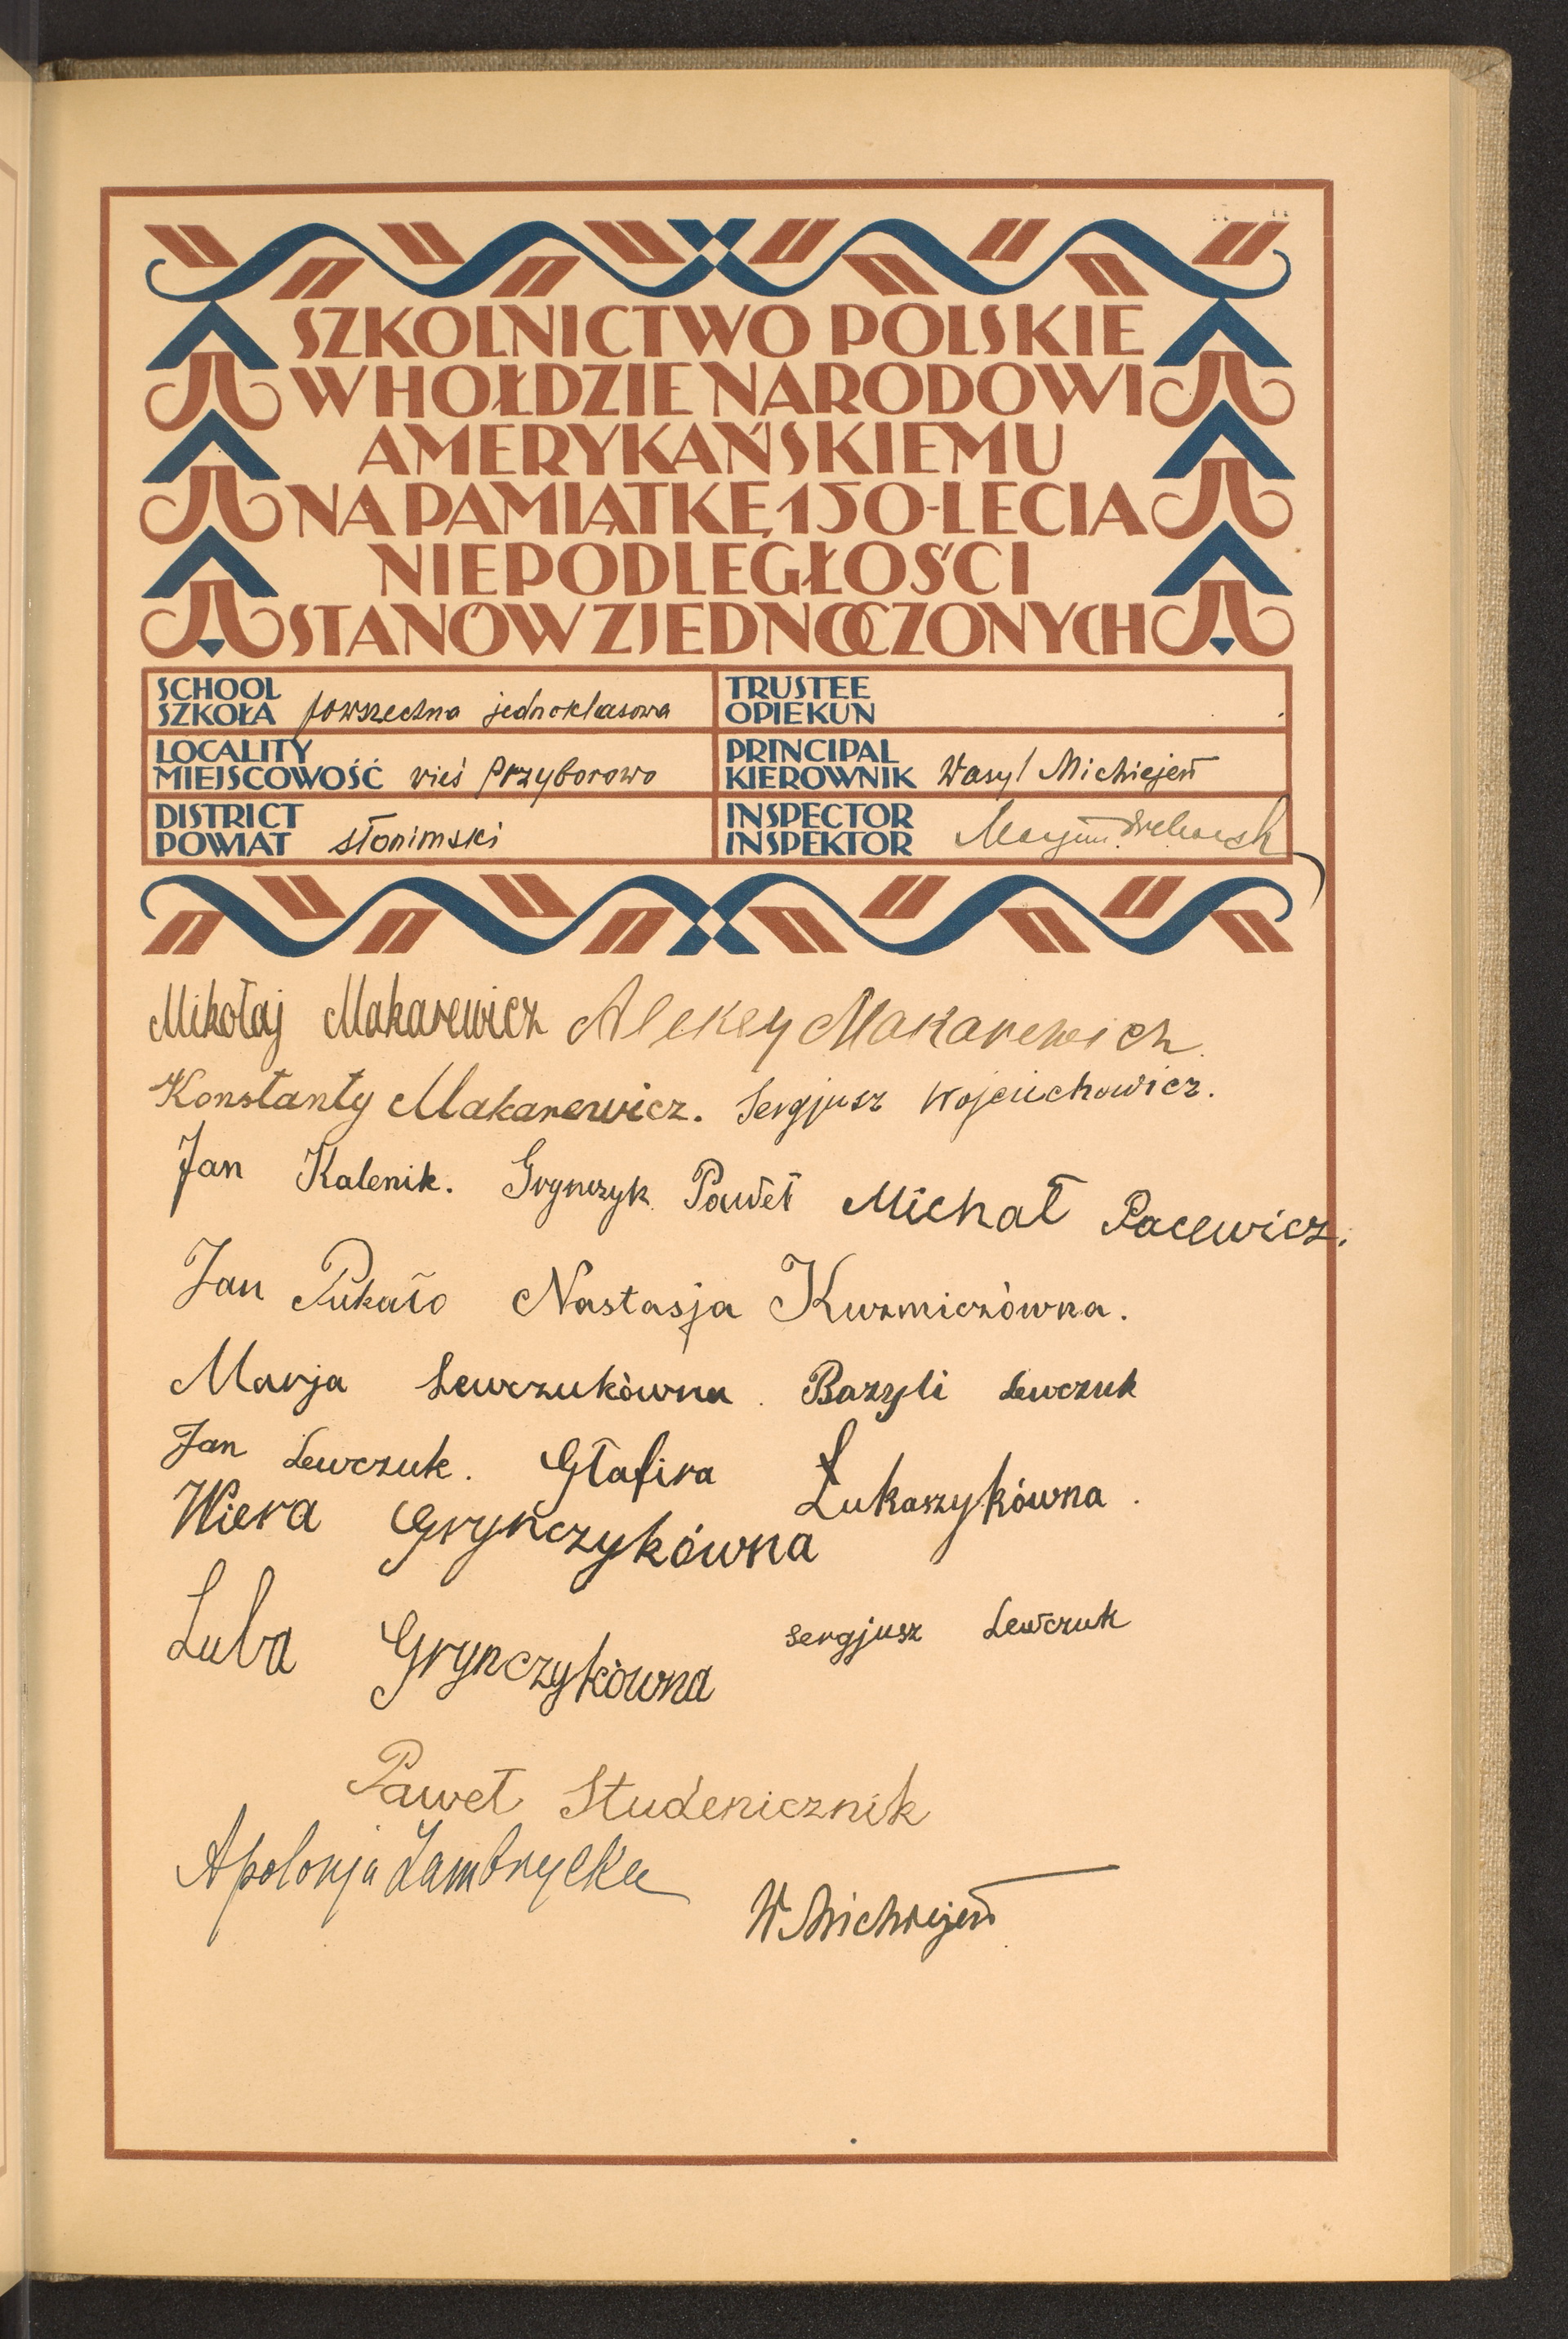 SZKOLNICTWO POLSKIE
W HOŁDZIE NARODOWI
AMERYKAŃSKIEMU
NA PAMIĄTKĘ 150-LECIA
NIEPODLEGŁOŚCI
STANÓW ZJEDNOCZONYCH
SCHOOL
SZKOŁA powszechna jednoklasowa
TRUSTEE
OPIEKUN
LOCALITY
MIEJSCOWOŚĆ wieś Przyborowo
PRINCIPAL
KIEROWNIK Wasyl Michiejew
DISTRICT
POWIAT słonimski
INSPECTOR
INSPEKTOR
Mikołaj Makarewicz Aleksy Makarewicz
Konstanty Makarewicz. Sergjusz Wojciechowicz.
Jan Kalenik. Grynczyk Paweł Michał Pacewicz.
Jan Pukało Nastasja Kuzmiczówna.
Marja Lewczukówna. Bazyli Lewczuk
Jan Lewczuk. Głafira Łukaszykówna.
Wiera Gryńczykówna
Luba Grynczykówna Sergjusz Lewczuk
Paweł Studenicznik
Apolonja Zambrycka
W Michiejew